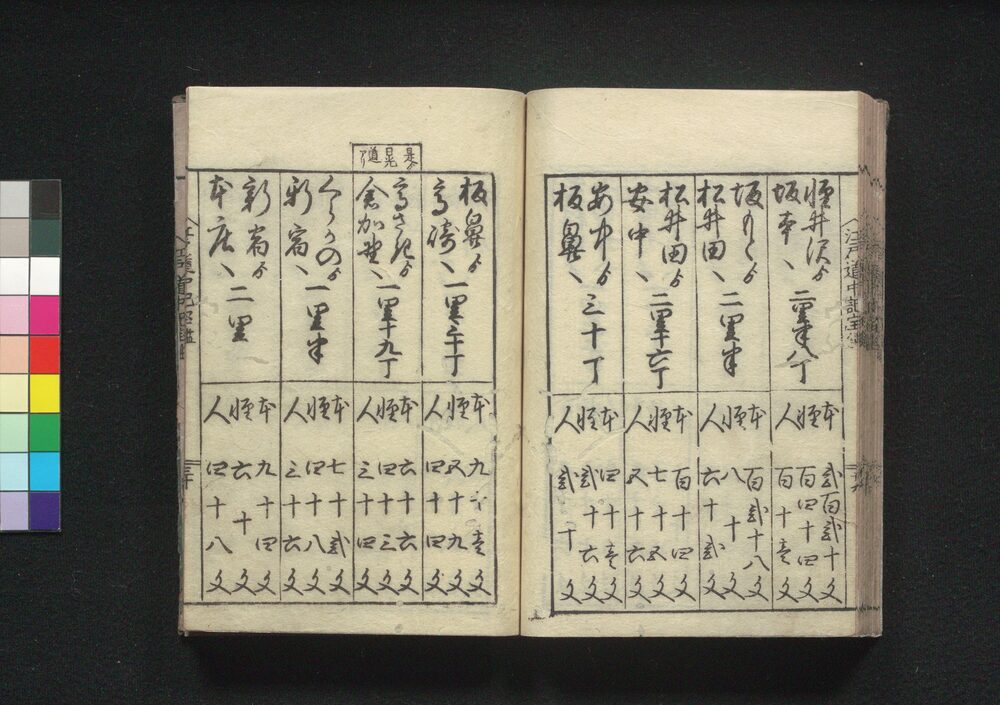 軽井沢ゟ
坂本へ 二里半八丁
本 弐百弐十文
軽 百四十四文
人 百十壱文
坂もとゟ
松井田へ 二里半
本 百弐十八文
軽 八十文
人 六十弐文
松井田ゟ
安中へ 二里十六丁
本 百十四文
軽 七十五文
人 五十六文
安中ゟ
板鼻へ 三十丁
本 四十壱文
軽 弐十六文
人 弐十文
是ゟ
日光
道
アリ
板鼻ゟ
高崎へ 一里三十丁
本 九十壱文
軽 五十九文
人 四十四文
高さきゟ
倉加野へ 一里十九丁
本 六十六文
軽 四十三文
人 三十四文
くらかのゟ
新宿へ 一里半
本 七十弐文
軽 四十八文
人 三十六文
新宿ゟ
本庄へ 二里
本 九十四文
軽 六十文
人 四十八文